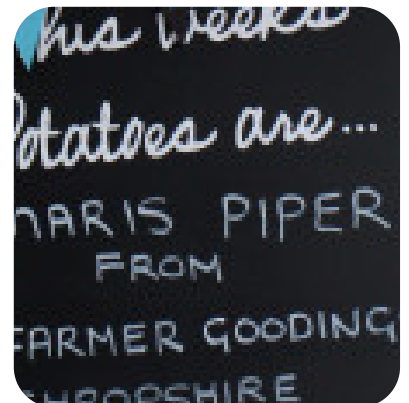 This Weeks
Potatoes are...
MARIS PIPER
FROM
FARMER GOODING
SHROPSHIRE